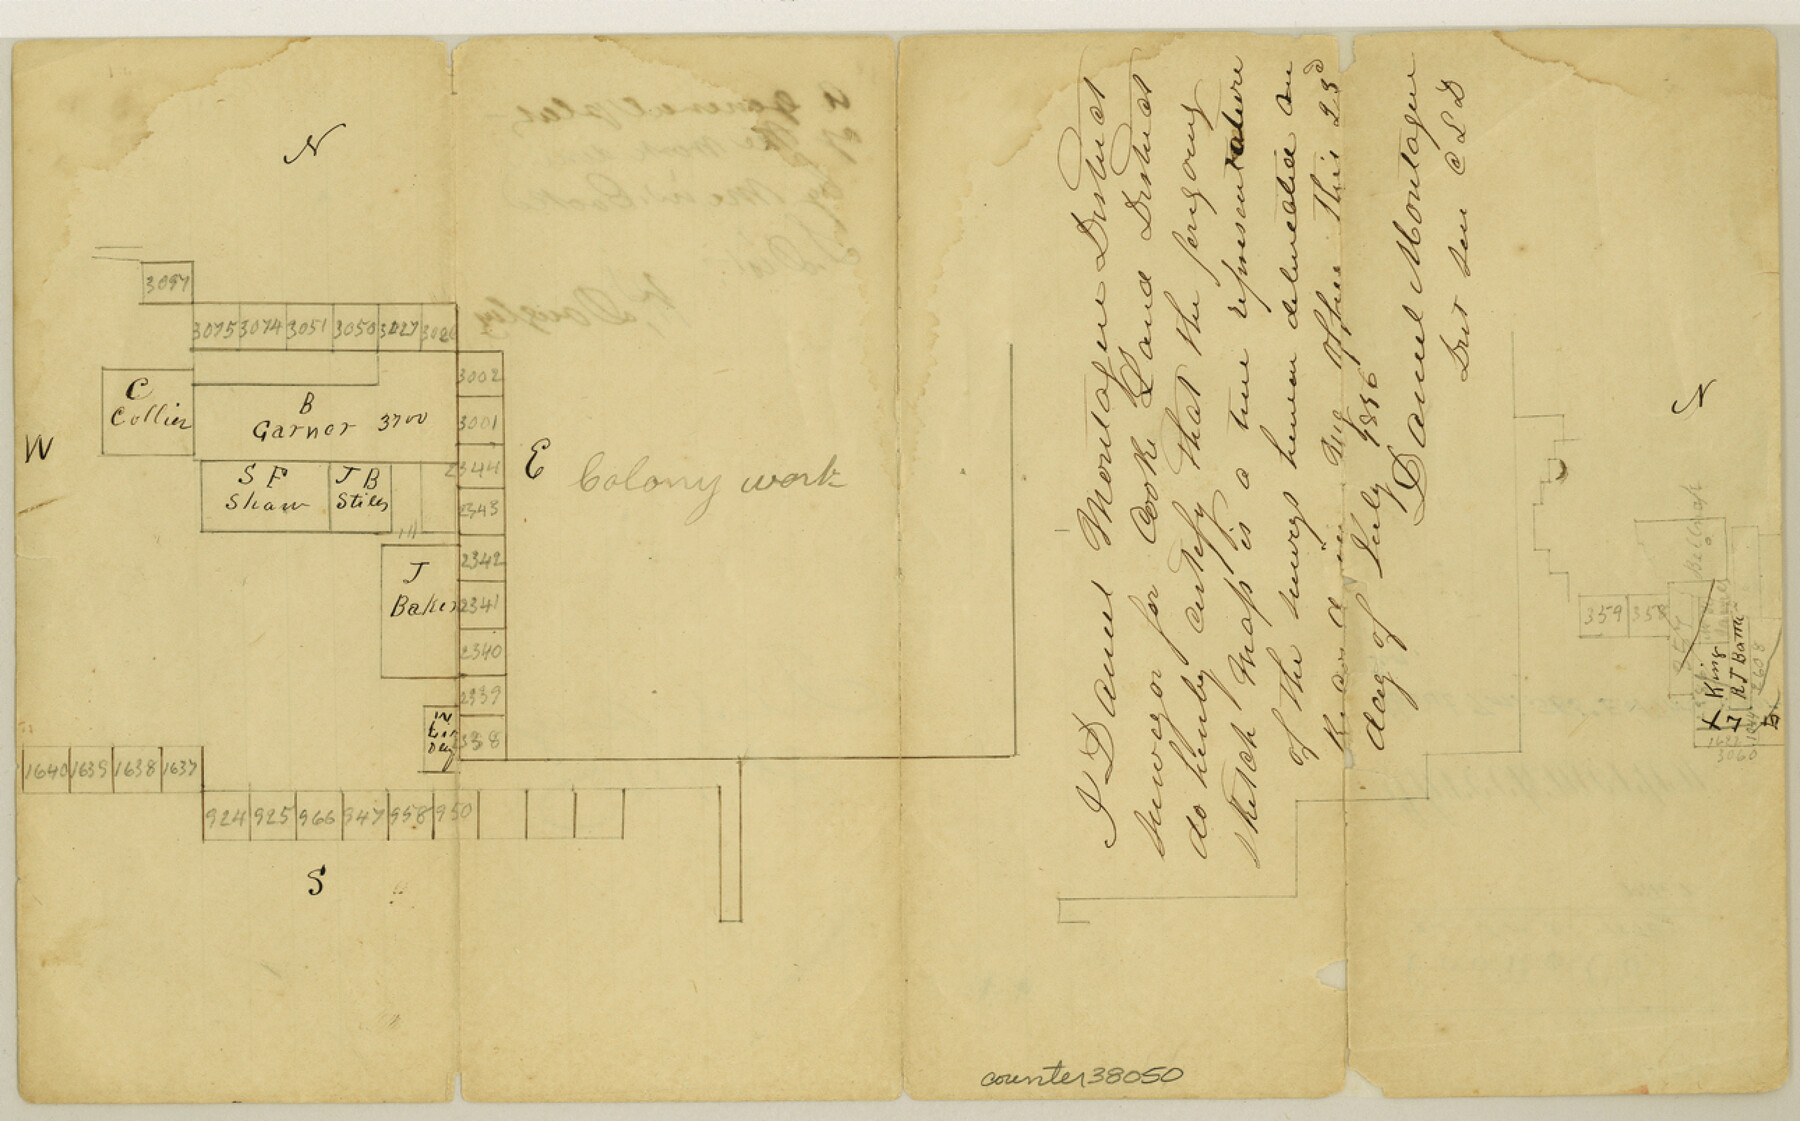 N
3097
3075 3074 3051 3050 3027 3026
C
Collier
B
Garner 3700
3002
3001
2344
2343
2342
2341
2340
2339
338
W
E
Colony work
S F
Shaw
J B
Stiles
J
Baker
1640 1639 1638 1637
924 925 966 947 958 950
S
I Daniel Montague District
Surveyor for Cooke Land District
do hereby certify that the forgoing
sketch map is a true representature
of the surveys herein delineated on
Record in my office this 23d
day of July 1856
Daniel Montague
Dist Sur C L D
N
359 358
King
R J Battle
3060
counter 38050